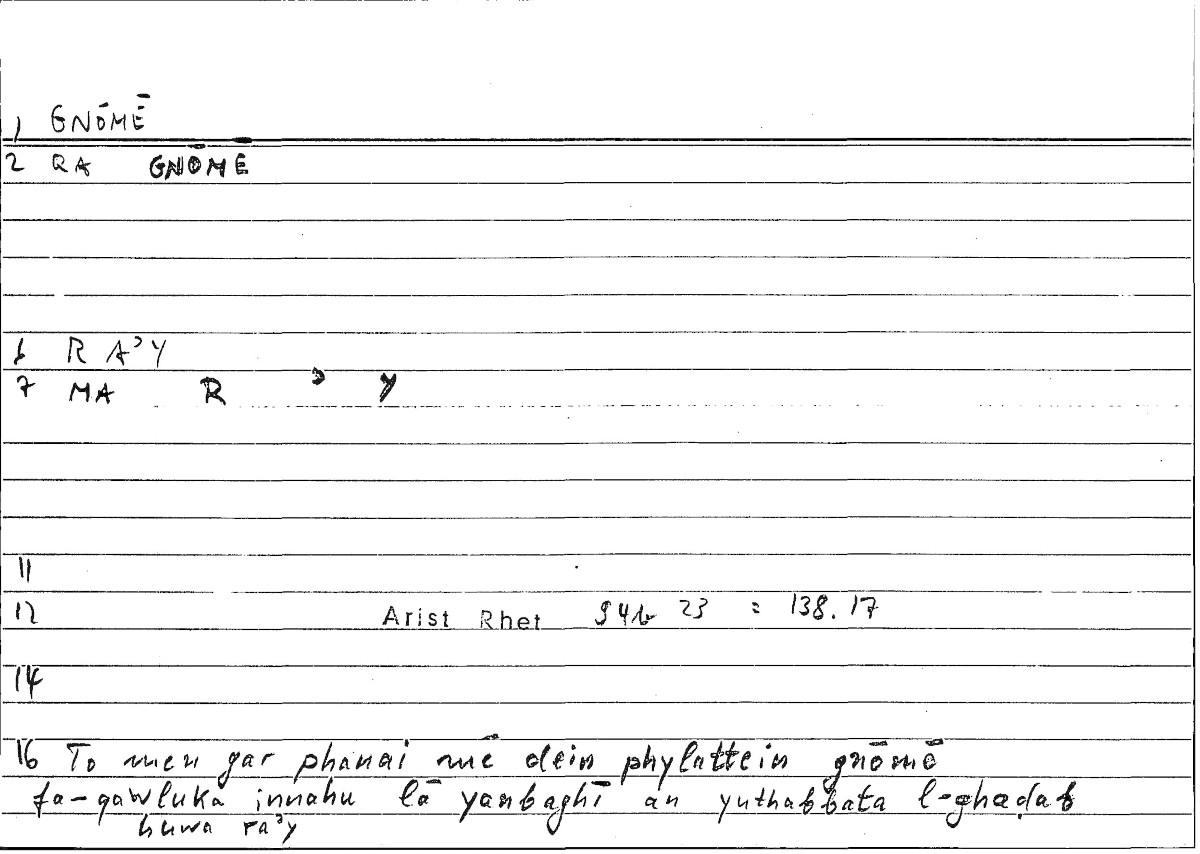 1 GNŌMĒ
2 QA GNŌMĒ
6 R Aʾ Y
7 MA R ʾ Y
11
12 Arist Rhet 94b 23 = 138.17
14
16 To men gar phanai mē dein phylattein gnōmē
fa-qawluka innahu lā yanbaghī an yuthabbata l-ghaḍab
huwa raʾy